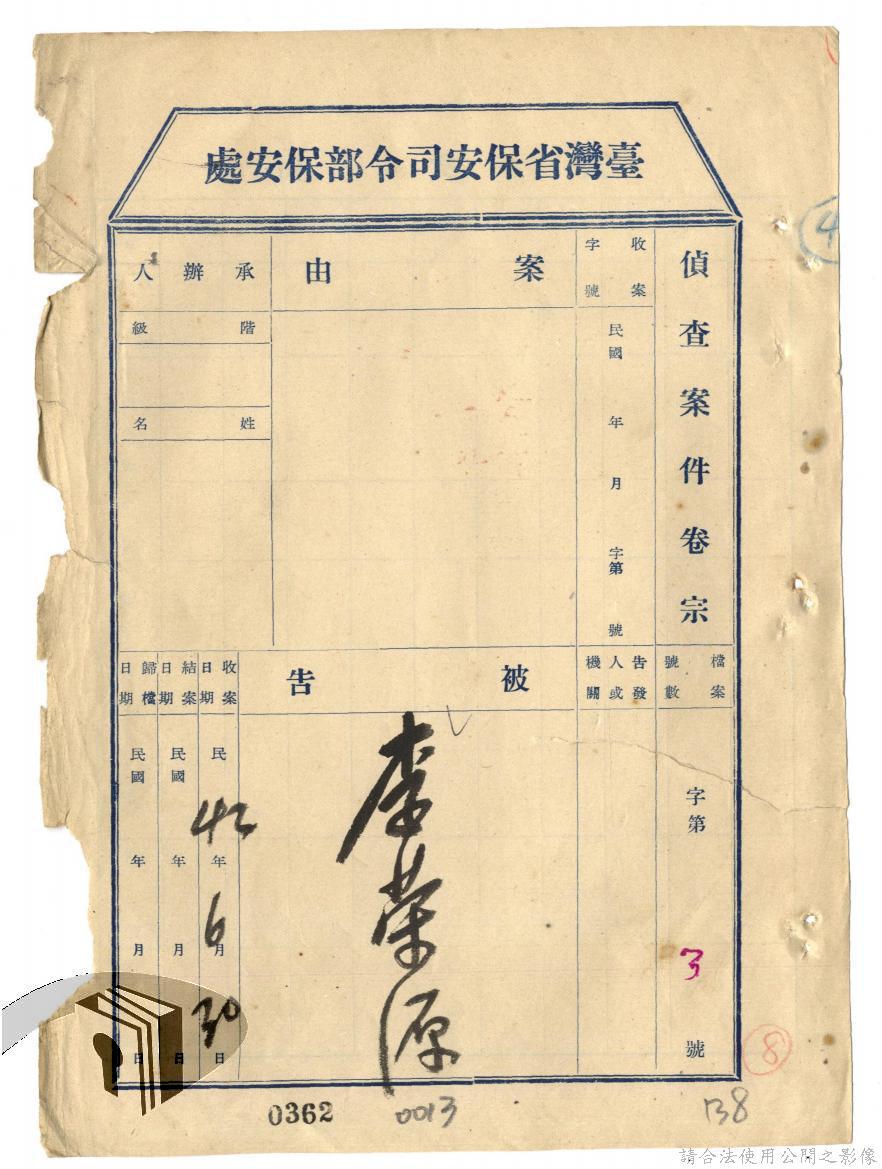 臺灣省保安司令部保安處
偵查案件卷宗
收案
字號
民國 年 月 字第 號
案由
承辦人
階級
姓名
檔案
號數
字第 3 號
告發
人或
機關
被告
李荣源
收案
日期
民 42 年 6 月 30 日
結案
日期
民國 年 月 日
歸檔
日期
民國 年 月 日
4
8
0362
0013
B8
請合法使用公開之影像